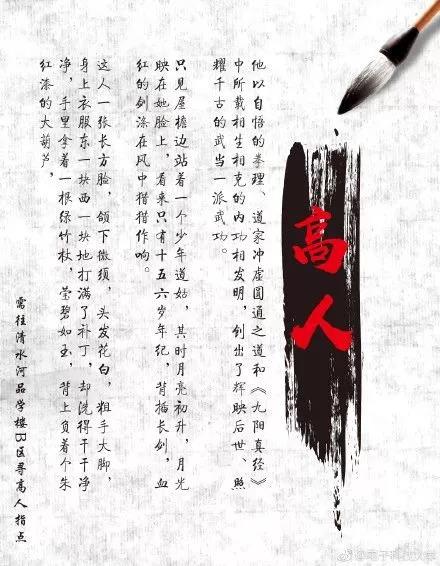 高人
他以自悟的拳理、道家冲虚圆通之道和《九阳真经》
中所载相生相克的内功相发明，创出了辉映后世、照
耀千古的武当一派武功。
只见屋檐边站着一个少年道姑，其时月亮初升，月光
映在她脸上，看来只有十五六岁年纪，背插长剑，血
红的剑涤在风中猎猎作响。
这人一张长方脸，颌下微须，头发花白，粗手大脚，
身上衣服东一块西一块地打满了补丁，却洗得干干净
净，手里拿着一根绿竹杖，莹碧如玉，背上负着个朱
红漆的大葫芦，
需往清水河品学楼B区寻高人指点